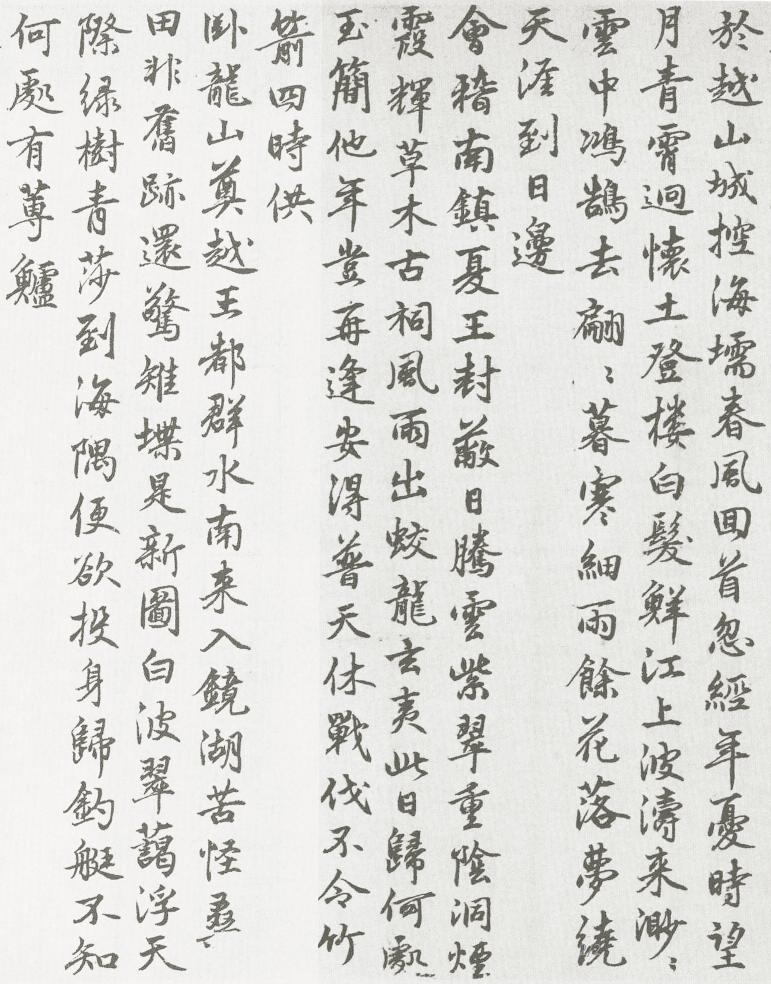 於越山城控海堧春風回首忽經年憂時望
月青霄迥懷土登樓白髮鮮江上波濤来渺〻
雲中鴻鵠去翩〻暮寒細雨餘花落夢繞
天涯到日邊
會稽南鎮夏王封蔽日騰雲紫翠重陰洞煙
霞輝草木古祠風雨出蛟龍玄夷此日歸何處
玉簡他年豈再逢安得普天休戰伐不令竹
箭四時供
卧龍山奠越王都群水南来入鏡湖苦怪桑
田非舊跡還驚雉堞是新圖白波翠藹浮天
際緑樹青莎到海隅便欲投身歸釣艇不知
何處有蓴鱸